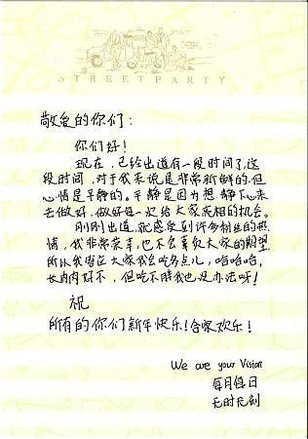 STREETPARTY
敬爱的你们：
你们好！
现在，已经出道有一段时间了，这
段时间，对于我来说是非常新鲜的，但
心情是平静的。平静是因为想静下心来
去做好，做好每一次给大家亮相的机会。
刚刚出道，就感受到许多粉丝的热
情，我非常荣幸，也不会辜负大家的期望
所以我留在大家我会吃多点儿，哈哈哈，
长肉肉好不，但吃不胖我也没办法呀！
祝
所有的你们新年快乐！合家欢乐！
We are your Vision
每月每日
无时无刻